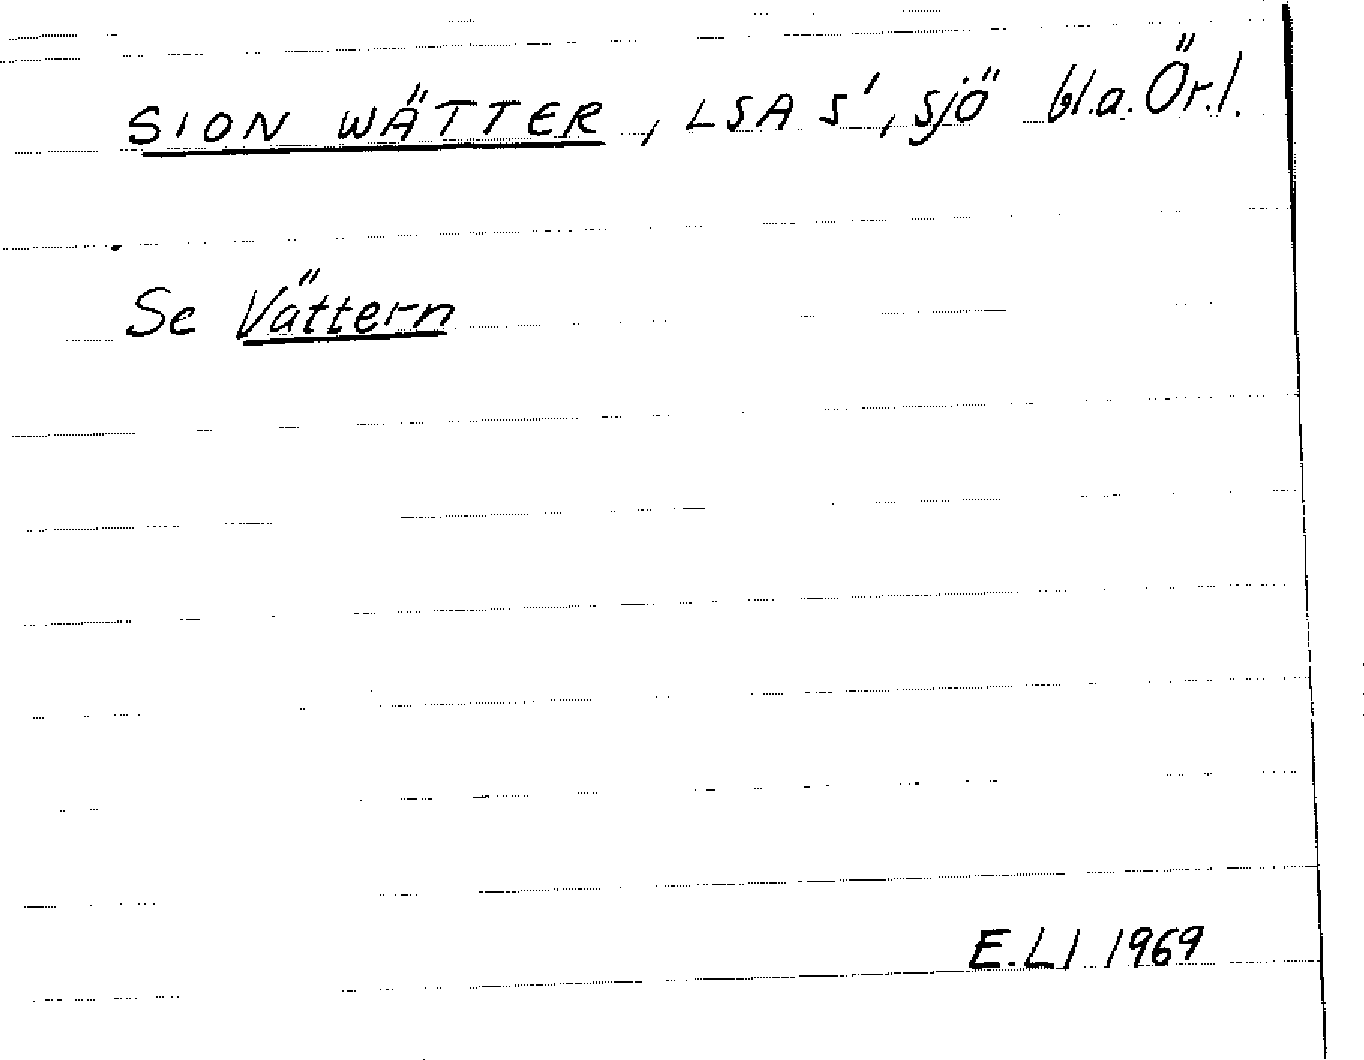 SION WÄTTER, LSA S', sjö bl.a. Ör.l.
Se Vättern
E.LI 1969